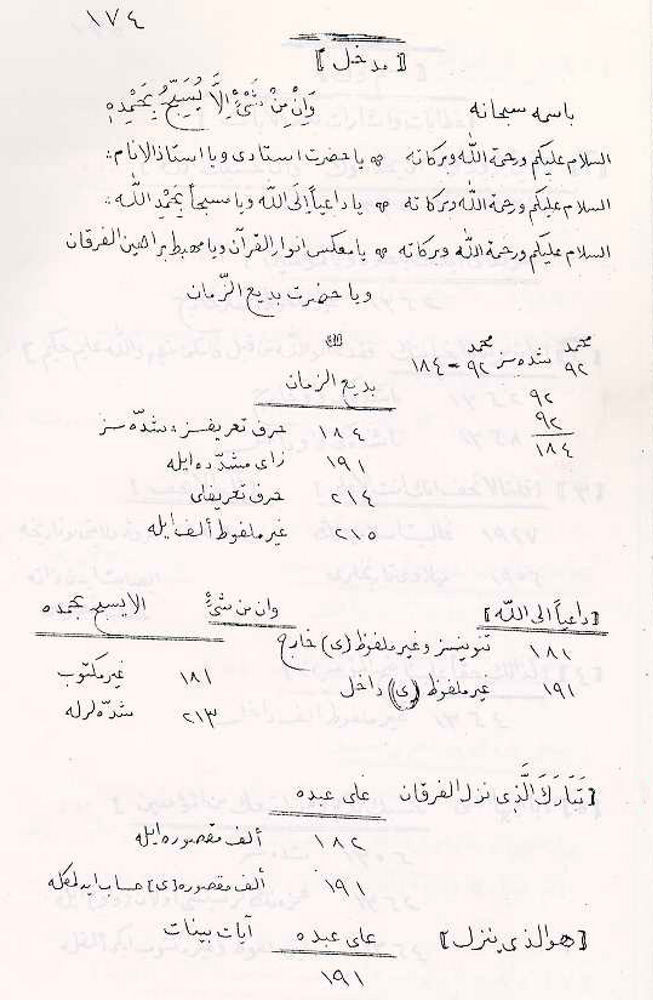 ١٧٤
[مدخل]
باسمه سبحانه وَاِنْ مِنْ شَیْءٍ اِلَّا يُسَبِّحُ بِحَمْدِهِ
السلام عليكم ورحمة الله وبركاته يا حضرت استادى ويا استاذ الانام
السلام عليكم ورحمة الله وبركاته يا داعياً اِلَى اللّٰه ويا مسبحاً بحَمْدِ اللّٰه
السلام عليكم ورحمة الله وبركاته يا معكس انوار القرآن ويا مهبط براهين الفرقان
ويا حضرت بديع الزّمان
محمد محمد
٩٢ شده سز ٩٢ = ١٨٤
٩٢
٩٢
١٨٤
بديع الزمان
١٨٤ حرف تعريفسز، شدّه سز
١٩١ زاى مشدّده ايله
٢١٤ حرف تعريفلى
٢١٥ غير ملفوظ ألف ايله
[داعياً الى اللّٰه] وان من شىءٍ الا يسبح بحمده
١٨١ تنوينسز وغير ملفوظ (ى) خارج
١٩١ غير ملفوظ (ى) داخل
١٨١ غير مكتوب
٢١٣ شدّه لرله
[تَبَارَكَ الَّذِى نزل الفرقان على عبده
١٨٢ ألف مقصوره ايله
١٩١ ألف مقصوره [ى] حساب ايدلمكله
[هو الذى ينزل] على عبده آيات بينات
١٩١